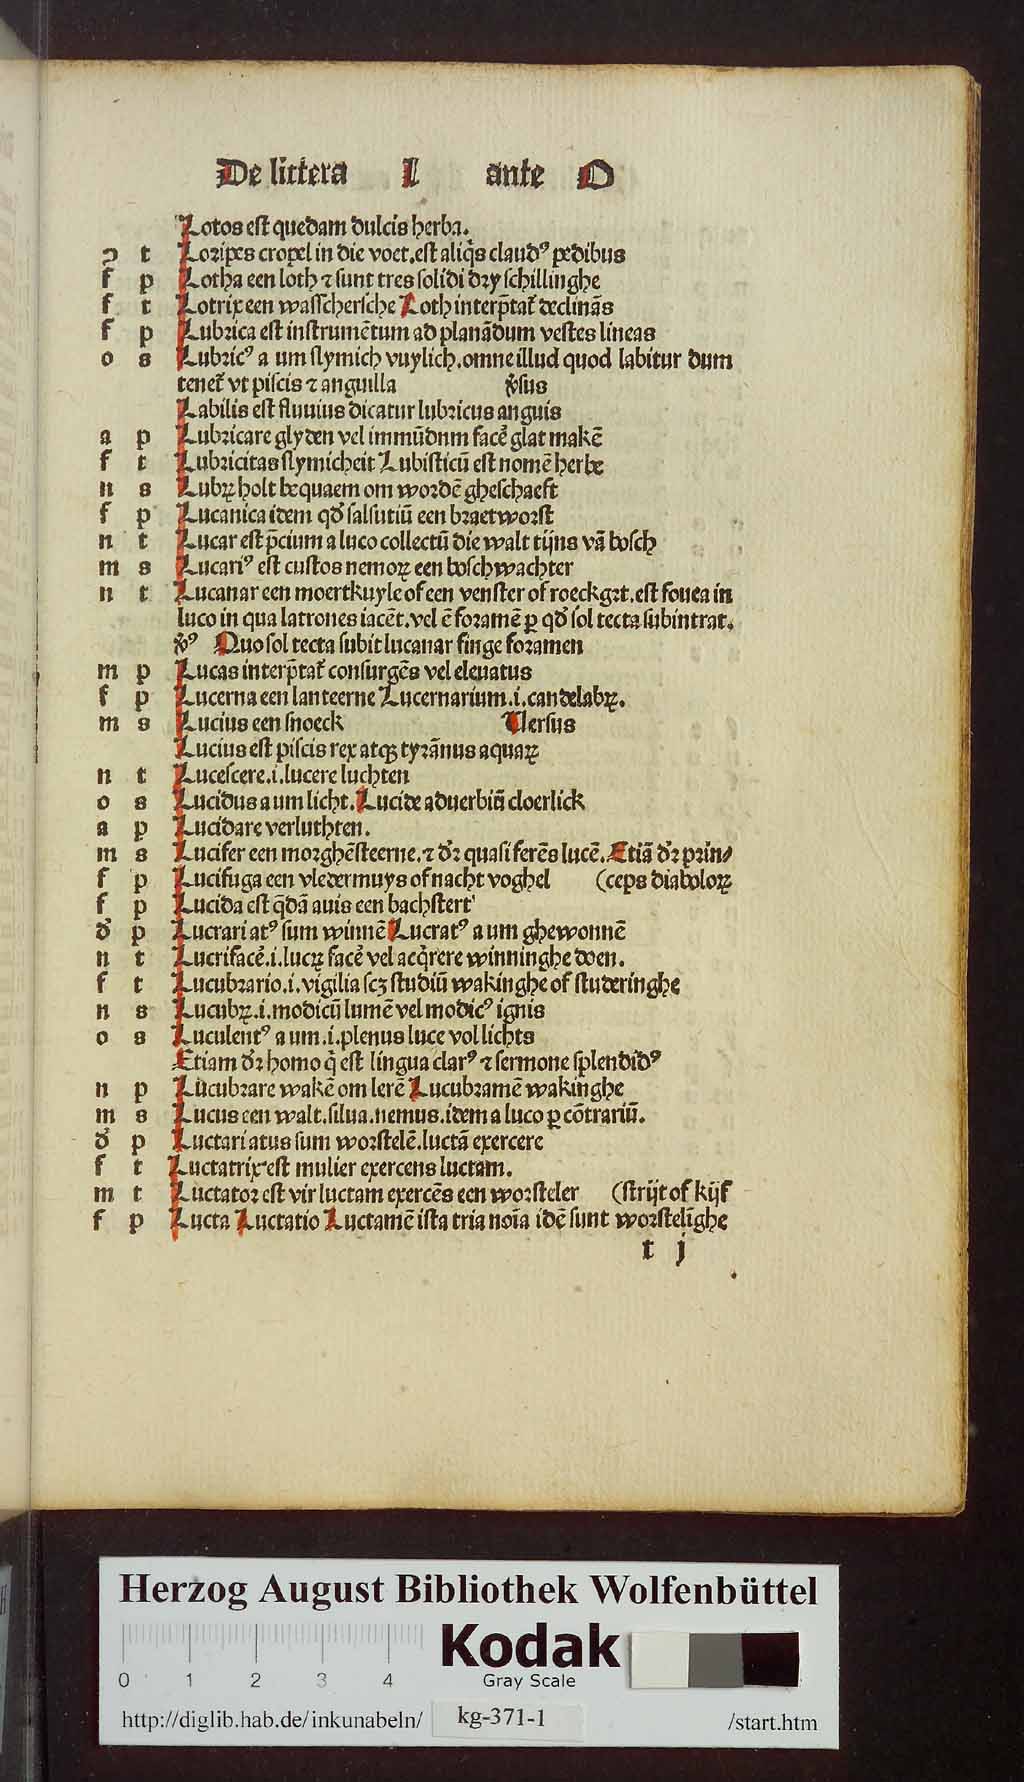 De littera L ante O
Lotos est quedam dulcis herba.
ↄ t Loripes cropel in die voet. est aliq̄s claudꝰ pedibus
f p Lotha een loth ⁊ sunt tres solidi dry schillinghe
f t Lotrix een wasschersche Loth interp̄tat̉ declinās
f p Lubrica est instrumētum ad planādum vestes lineas
o s Lubricꝰ a um slymich vuylich. omne illud quod labitur dum
tenet̉ vt piscis ⁊ anguilla v̉sus
Labilis est fluuius dicatur lubricus anguis
a p Lubricare glyden vel immūdnm facē glat makē
f t Lubricitas slymicheit Lubisticū est nomē herbe
n s Lubꝝ holt bequaem om wordē gheschaeft
f p Lucanica idem qd̉ salsutiū een braetworst
n t Lucar est p̄cium a luco collectū die walt tijns vā bosch
m s Lucariꝰ est custos nemoꝝ een boschwachter
n t Lucanar een moertkuyle of een venster of roeckgat. est fouea in
luco in qua latrones iacēt. vel ē foramē ꝑ qd̉ sol tecta subintrat.
v̉ꝰ Quo sol tecta subit lucanar finge foramen
m p Lucas interp̄tat̉ consurgēs vel eleuatus
f p Lucerna een lanteerne Lucernarium .i. candelabꝝ.
m s Lucius een snoeck Versus
Lucius est piscis rex atqꝫ tyrānus aquaꝝ
n t Lucescere .i. lucere luchten
o s Lucidus a um licht. Lucide aduerbiū cloerlick
a p Lucidare verluthten.
m s Lucifer een morghēsteerne. ⁊ dr̉ quasi ferēs lucē. Etiā dr̉ prin⸗
f p Lucifuga een vledermuys of nacht voghel (ceps diaboloꝝ
f p Lucida est q̄dā auis een bachstert
d̉ p Lucrari atꝰ sum winnē Lucratꝰ a um ghewonnē
n t Lucrifacē .i. lucꝝ facē vel acq̄rere winninghe doen.
f t Lucubrario .i. vigilia scꝫ studiū wakinghe of studeringhe
n s Lucubꝝ .i. modicū lumē vel modicꝰ ignis
o s Luculentꝰ a um .i. plenus luce vol lichts
Etiam dr̉ homo q̄ est lingua clarꝰ ⁊ sermone splendidꝰ
n p Lucubrare wakē om lerē Lucubramē wakinghe
m s Lucus een walt. silua. nemus. idem a luco ꝑ cōtrariū.
d̉ p Luctari atus sum worstelē. luctā exercere
f t Luctatrix est mulier exercens luctam.
m t Luctator est vir luctam exercēs een worsteler (strijt of kijf
f p Lucta Luctatio Luctamē ista tria noīa idē sunt worstelīghe
t j
Herzog August Bibliothek Wolfenbüttel
Kodak
Gray Scale
0 1 2 3 4
http://diglib.hab.de/inkunabeln/ kg-371-1 /start.htm